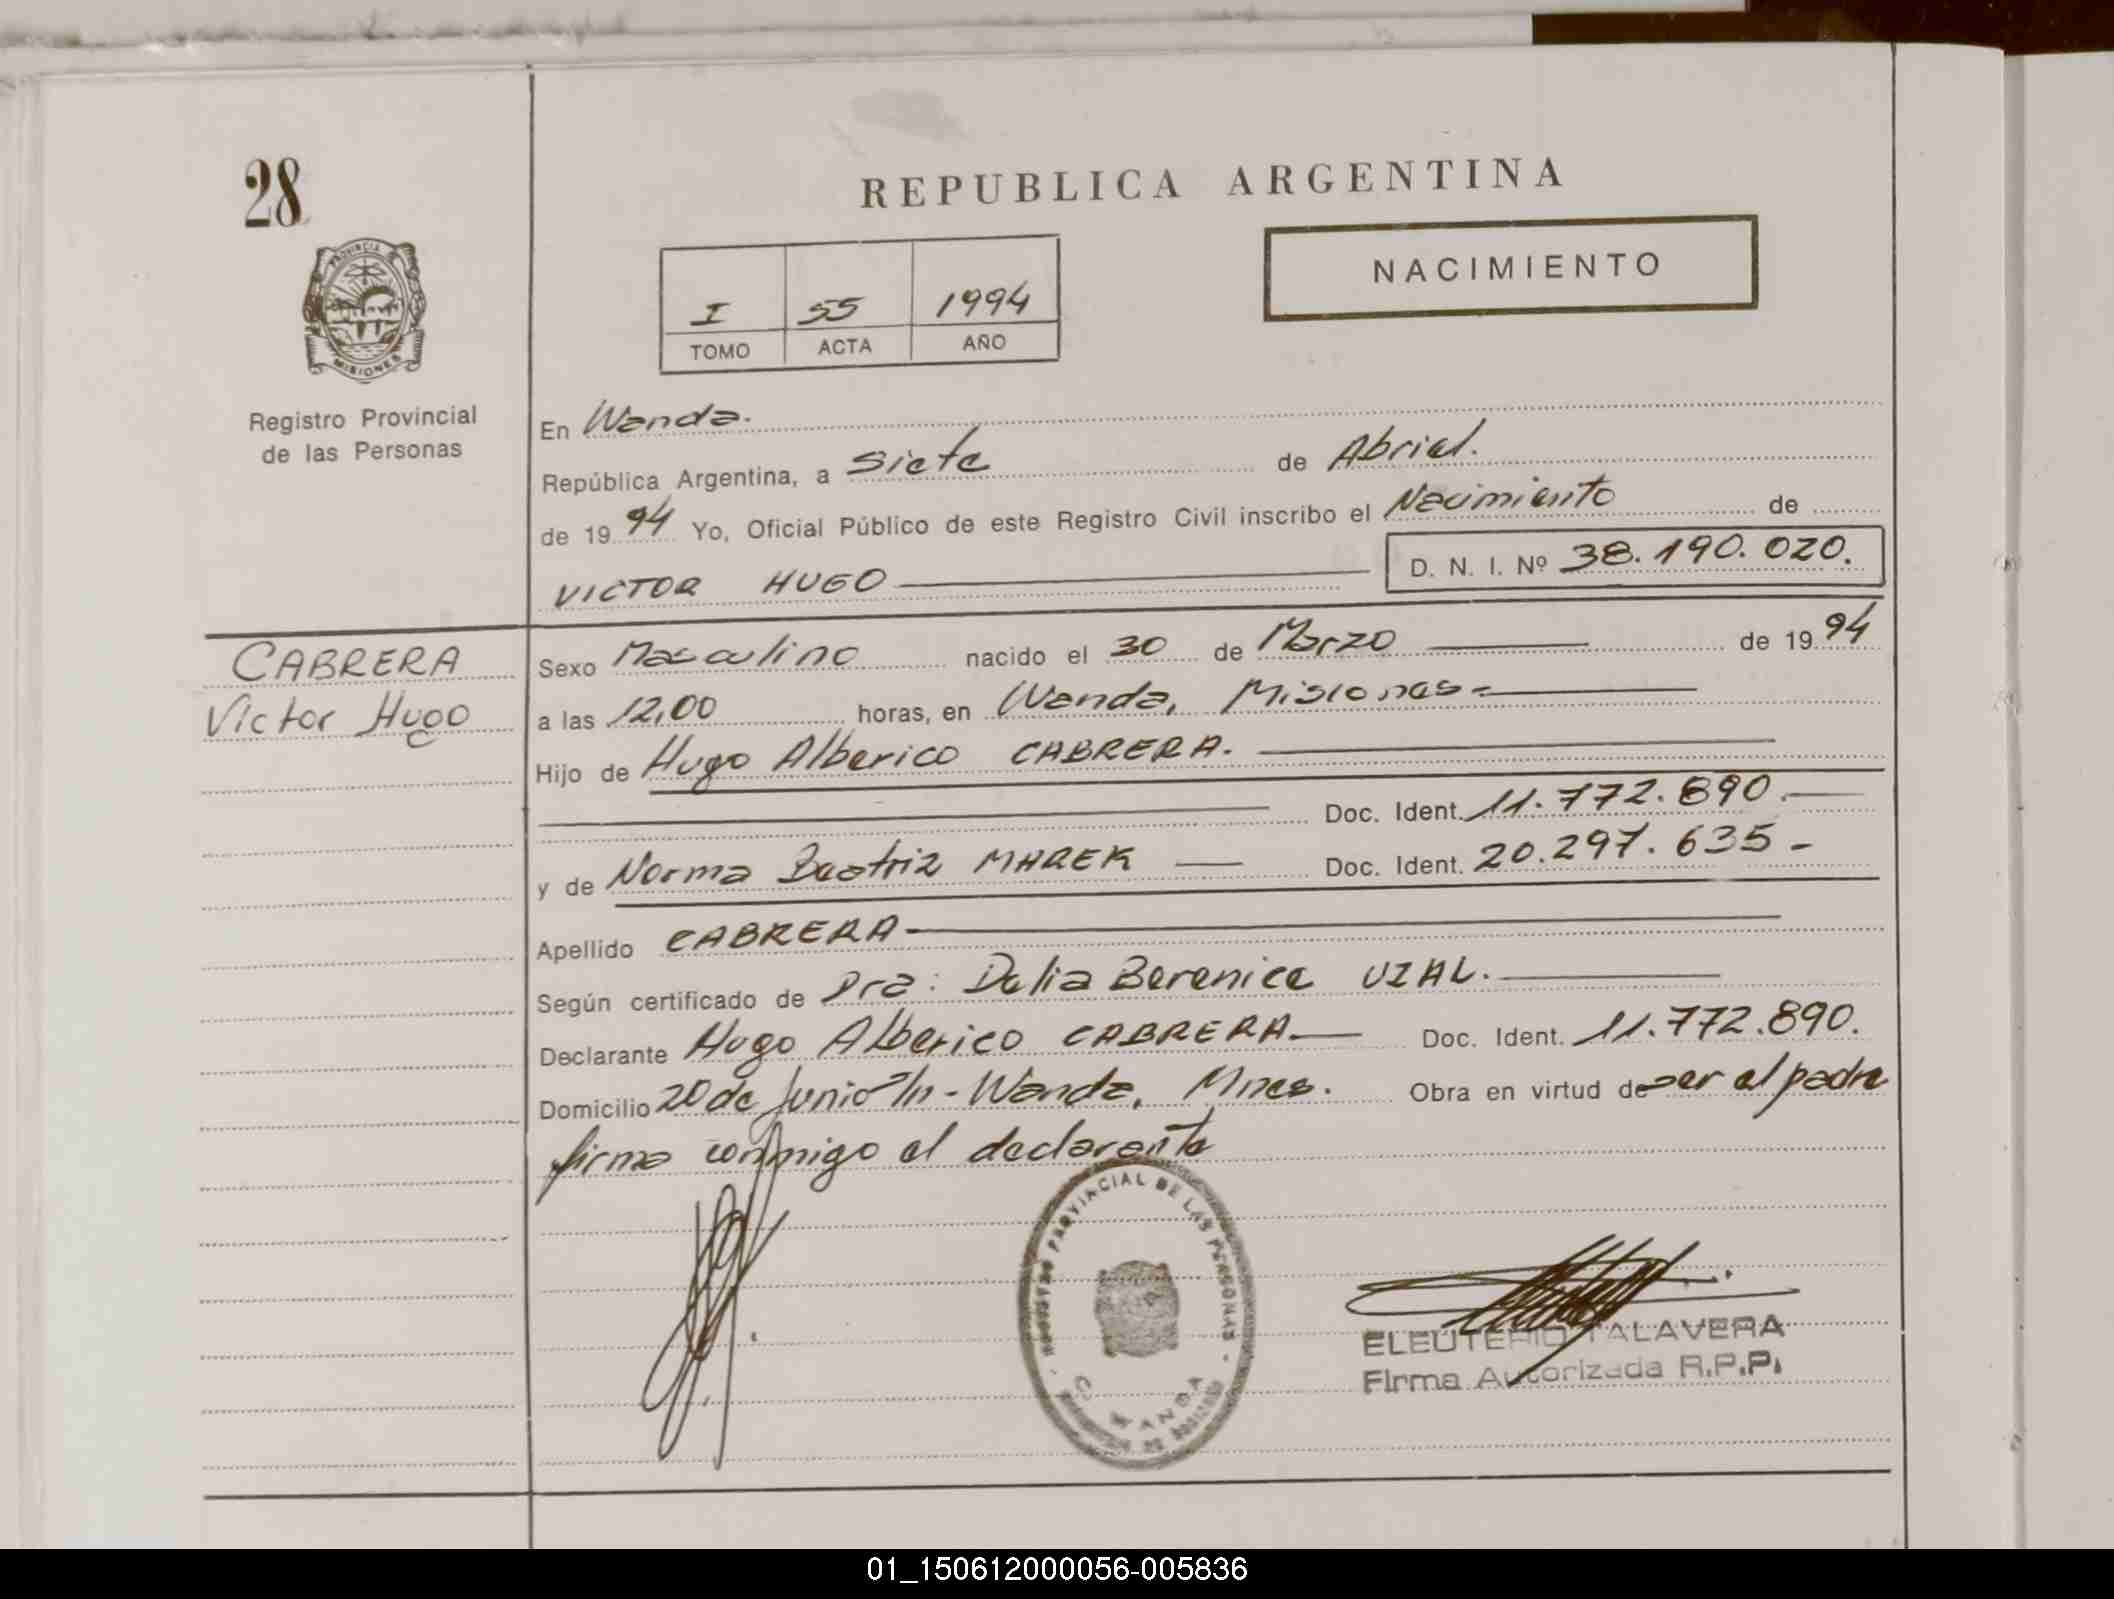 28
PROVINCIA
MISIONES
Registro Provincial
de las Personas
REPUBLICA ARGENTINA
NACIMIENTO
I 55 1994
TOMO ACTA AÑO
En Wanda.
República Argentina, a Siete de Abril.
de 1994 Yo, Oficial Público de este Registro Civil inscribo el Nacimiento de
VICTOR HUGO D. N. I. Nº 38.190.020.
CABRERA
Victor Hugo
Sexo Masculino nacido el 30 de Marzo de 1994
a las 12,00 horas, en Wanda, Misiones-
Hijo de Hugo Alberico CABRERA.
Doc. Ident. 11.772.890.
y de Norma Beatriz MAREK Doc. Ident. 20.297.635-
Apellido CABRERA
Según certificado de Dra: Delia Berenice VIAL.
Declarante Hugo Alberico CABRERA Doc. Ident. 11.772.890.
Domicilio 20 de Junio s/n - Wanda, Mnes. Obra en virtud de ser el padre
firma conmigo el declarante
REGISTRO PROVINCIAL DE LAS PERSONAS
WANDA
ELEUTERIO TALAVERA
Firma Autorizada R.P.P.
01_150612000056-005836